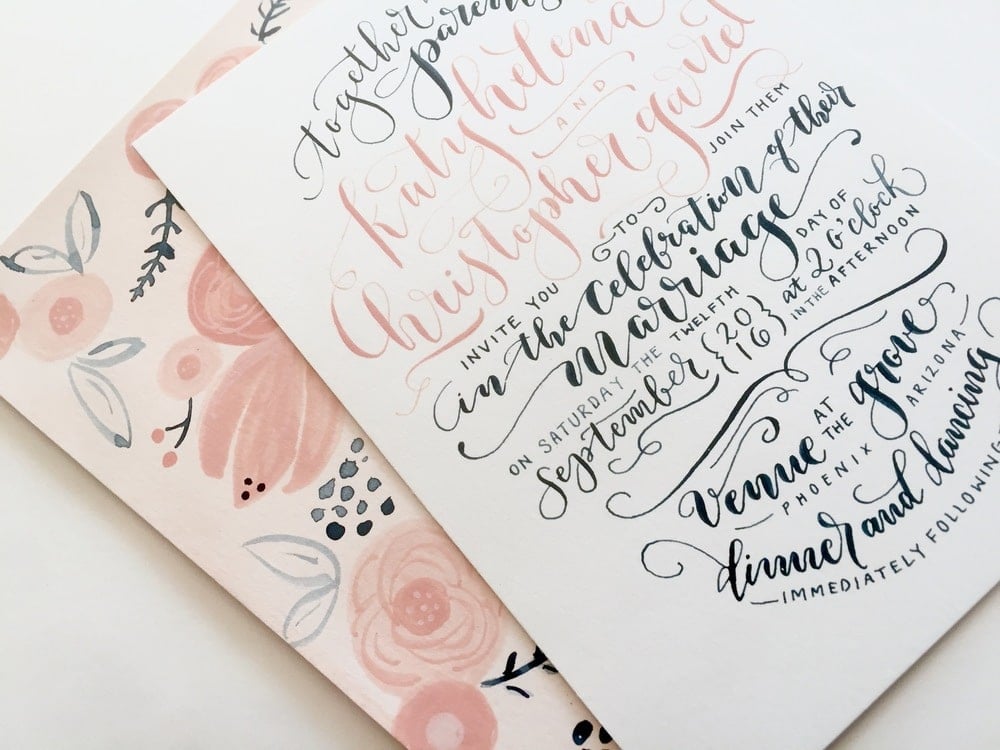 together
parents
katy helena
AND
Christopher gavriel
INVITE YOU TO JOIN THEM
in the Celebration of their
Marriage
ON SATURDAY THE TWELFTH DAY OF
September {2016} at 2 o'clock
IN THE AFTERNOON
Venue AT THE grove
PHOENIX ARIZONA
dinner and dancing
IMMEDIATELY FOLLOWING